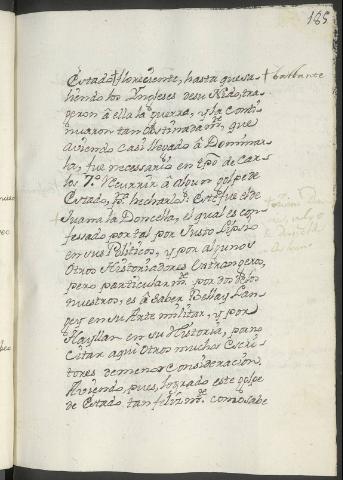 185
Estado † floreciente, hasta que sa- † bastante
liendo los Yngleses de su Nido, tra-
geron â ella la guerra, y la conti-
nuaron tan obstinadam.te, que
aviendo casi llevado â Dominar-
la, fue necessario en tpõ de Car-
los 7.º recurrir â algun golpe de
Estado, p.ª hecharlos: Este fue el de
Juana la Doncella, el qual es con-
fessado por tal por Justo Lipsio
en sus Politicos, y por algunos
Otros Historiadores Extrangeros,
pero particularm.te por dos de los
nuestros, es â saber Bellay Lan-
gey en su Arte militar, y por
Hayllan en su Historia, por no
Citar aqui Otros muchos Escri-
tores de menor Consideracion,
Aviendo, pues, logrado este golpe
de Estado tan felizm.te como sabe